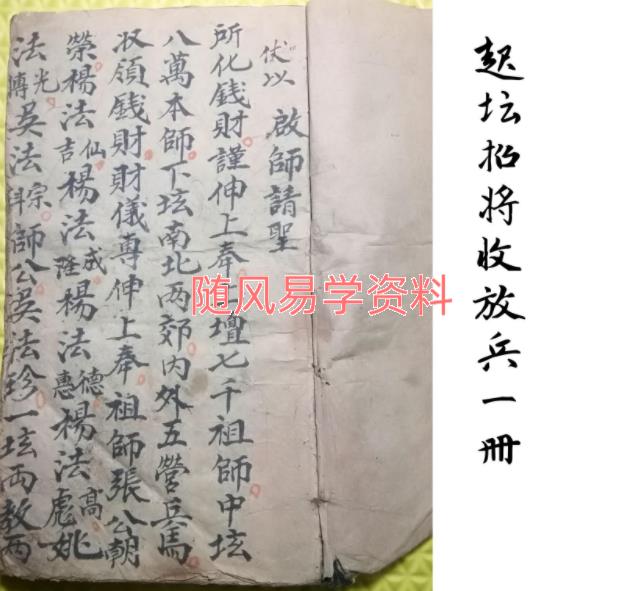 起坛招将收放兵一册
伏以 啟師請聖
所化錢財謹伸上奉上壇七千祖師中坛
八萬本師下坛南北两郊内外五營兵馬
收領錢財財儀專伸上奉祖師張公朝
榮楊法吉仙楊法隆成楊法惠德楊法彪高姚
法傳光吳法科宗師公吳法珍一坛両教两
随风易学资料